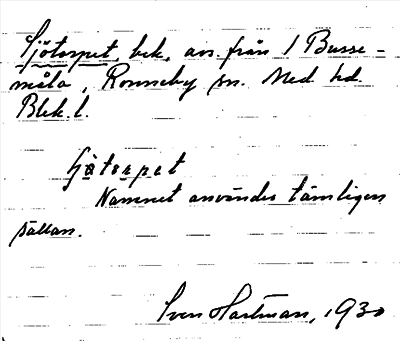 Sjötorpet, bek. avs. från 1 Busse-
måla, Ronneby sn. Med hd.
Blek. l.
ʃøtorpet
Namnet användes tämligen
sällan.
Sven Hartman, 1930